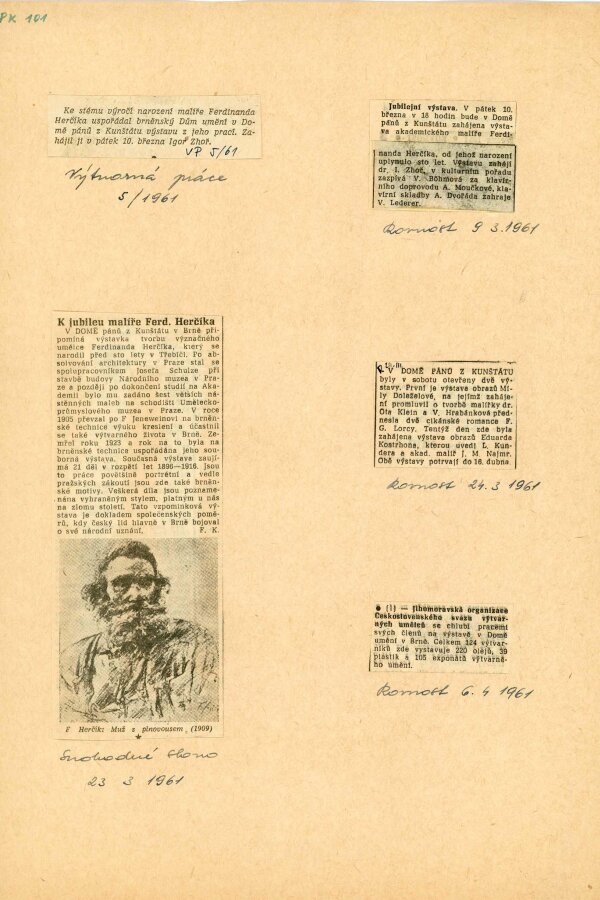 PK 101
Ke stému výročí narození malíře Ferdinanda
Herčíka uspořádal brněnský Dům umění v Do-
mě pánů z Kunštátu výstavu z jeho prací. Za-
hájil ji v pátek 10. března Igor Zhoř.
VP 5/61
Výtvarná práce
5/1961
K jubileu malíře Ferd. Herčíka
V DOMĚ pánů z Kunštátu v Brně při-
pomíná výstavka tvorbu význačného
umělce Ferdinanda Herčíka, který se
narodil před sto lety v Třebíči. Po ab-
solvování architektury v Praze stal se
spolupracovníkem Josefa Schulze při
stavbě budovy Národního muzea v Pra-
ze a později po dokončení studií na Aka-
demii bylo mu zadáno šest větších ná-
stěnných maleb na schodišti Umělecko-
průmyslového muzea v Praze. V roce
1905 převzal po F Jeneweinovi na brněn-
ské technice výuku kreslení a účastnil
se také výtvarného života v Brně. Ze-
mřel roku 1923 a rok na to byla na
brněnské technice uspořádána jeho sou-
borná výstava. Současná výstava zaují-
má 21 děl v rozpětí let 1896—1916. Jsou
to práce povětšině portrétní a vedle
pražských zákoutí jsou zde také brněn-
ské motivy. Veškerá díla jsou pozname-
nána vybraněným stylem, platným u nás
na zlomu století. Tato vzpomínková vý-
stava je dokladem společenských pomě-
rů, kdy český lid hlavně v Brně bojoval
o své národní uznání. F. K.
F Herčík: Muž s plnovousem (1909)
Svobodné slovo
23 3 1961
Jubilejní výstava. V pátek 10.
března v 18 hodin bude v Domě
pánů z Kunštátu zahájena výsta-
va akademického malíře Ferdi-
nanda Herčíka, od jehož narození
uplynulo sto let. Výstavu zahájí
dr. I. Zhoř, v kulturním pořadu
zazpívá V. Böhmová za klavír-
ního doprovodu A. Moučkové, kla-
vírní skladby A. Dvořáka zahraje
V. Lederer.
Rovnost 9 3.1961
V DOMĚ PÁNŮ Z KUNŠTÁTU
byly v sobotu otevřeny dvě vý-
stavy. První je výstava obrazů Mi-
ly Doleželové, na jejímž zaháje-
ní promluvil o tvorbě malířky dr.
Ota Klein a V. Hrabánková předne-
sla dvě cikánské romance F.
G. Lorcy. Tentýž den zde byla
zahájena výstava obrazů Eduarda
Kostrhona, kterou uvedl L. Kun-
dera a akad. malíř J. M. Najmr.
Obě výstavy potrvají do 16. dubna
Rovnost 24.3 1961
● (l) — Jihomoravská organizace
Československého svazu výtvar-
ných umělců se chlubí pracemi
svých členů na výstavě v Domě
umění v Brně. Celkem 124 výtvar-
níků zde vystavuje 220 olejů, 39
plastik a 105 exponátů výtvarné-
ho umění.
Rovnost 6. 4 1961